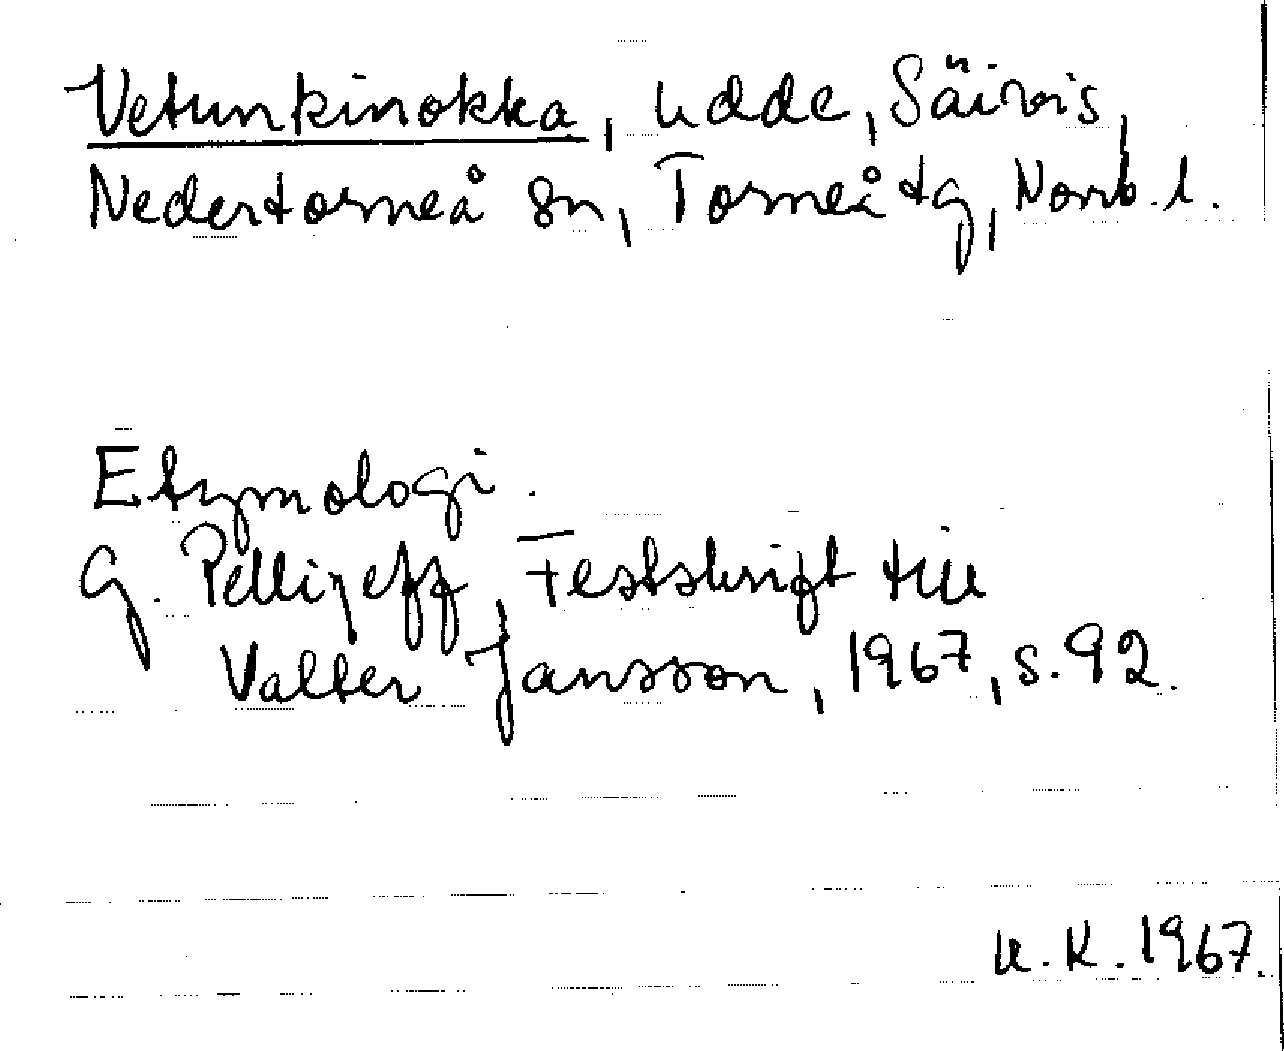 Vetunkinokka, udde, Säivis,
Nedertorneå sn, Torneå tg, Norrb. l.
Etymologi.
G. Pellijeff, Festskrift till
Valter Jansson, 1967, s. 92.
K. K. 1967.